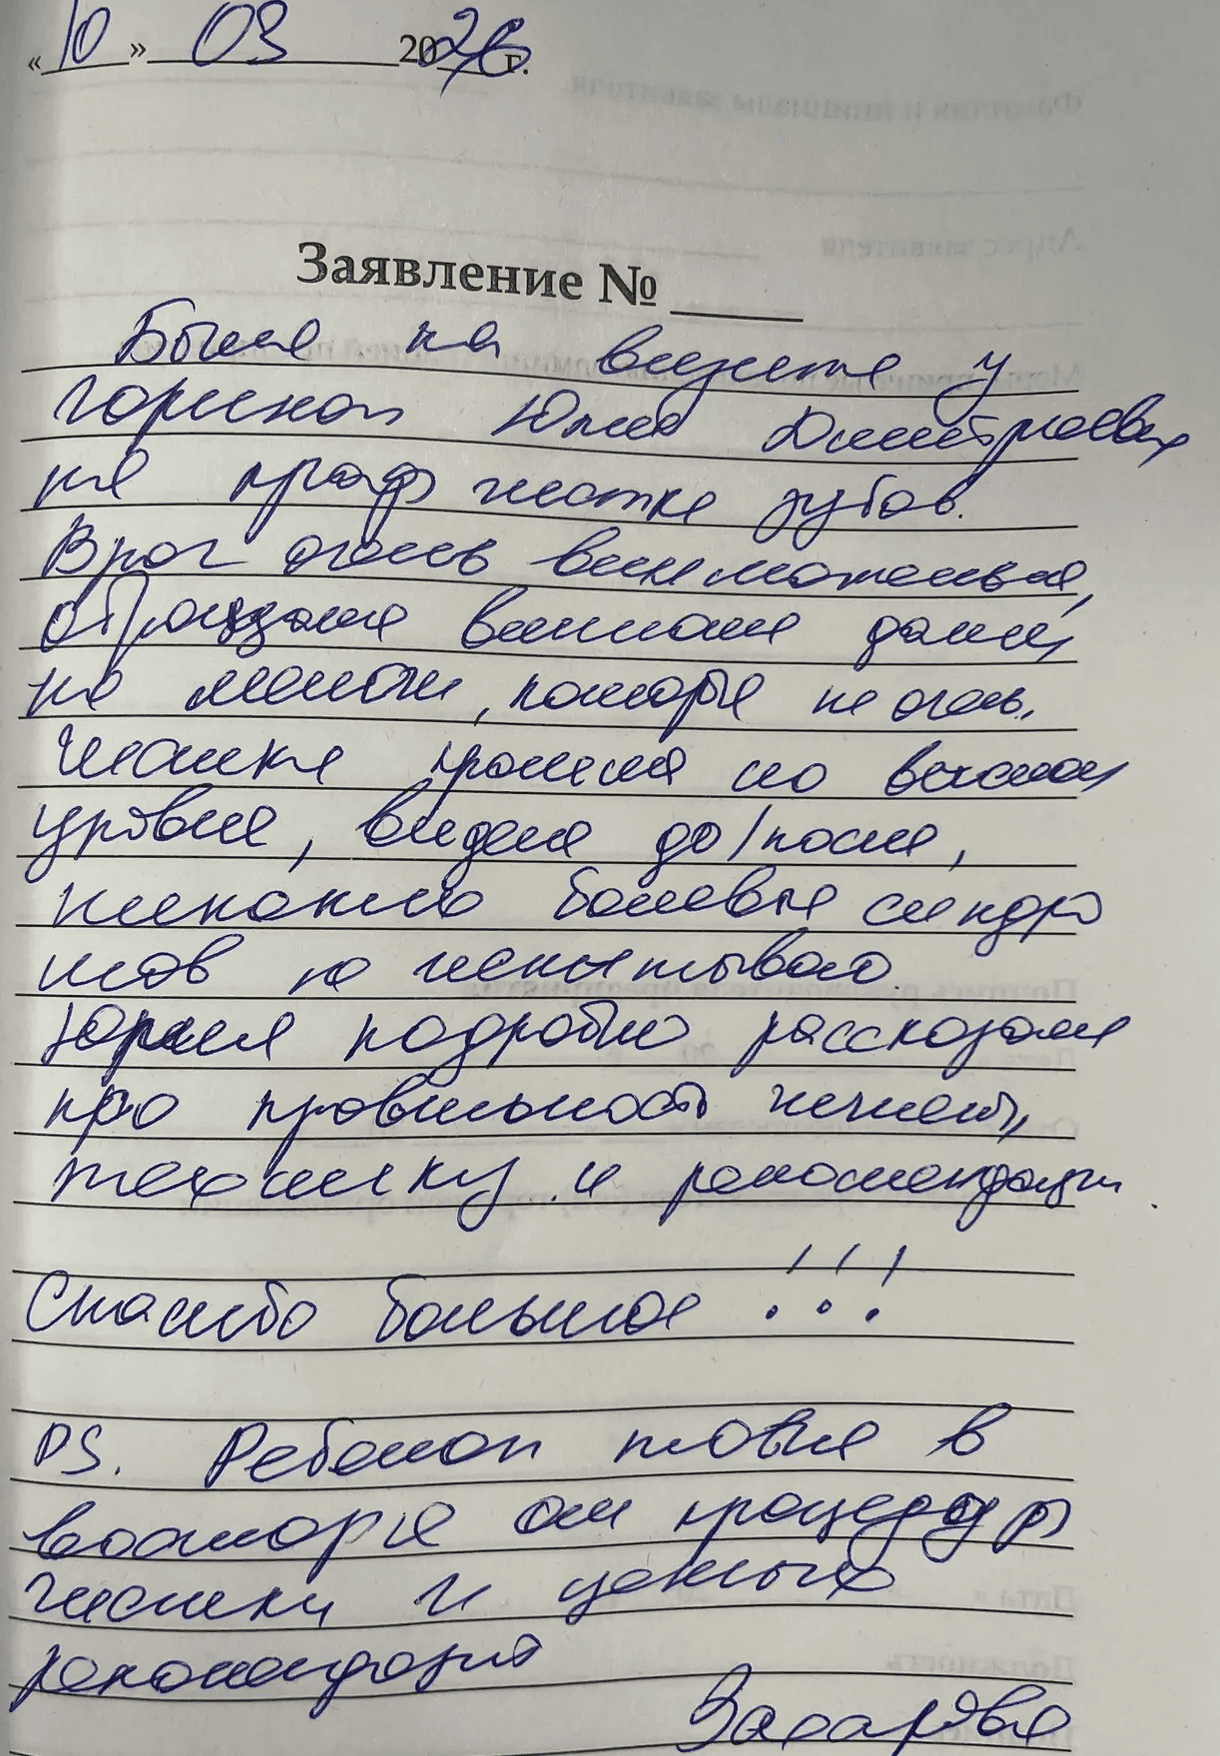 «10» 03 2026 г.
Заявление №
Была на визите у
Горской Юлии Дмитриевны
на проф чистке зубов.
Врач очень внимательная,
обращала внимание даже
на мелочи, которые не очень.
Чистка прошла на высоком
уровне, видела до/после,
никаких болевых синдро
мов не испытываю.
Юлия подробно рассказала
про правильность чистки,
технику и рекомендации.
Спасибо большое!!!
PS. Ребенок тоже в
восторге от процедуры
чистки и ценных
рекомендаций
Захарова